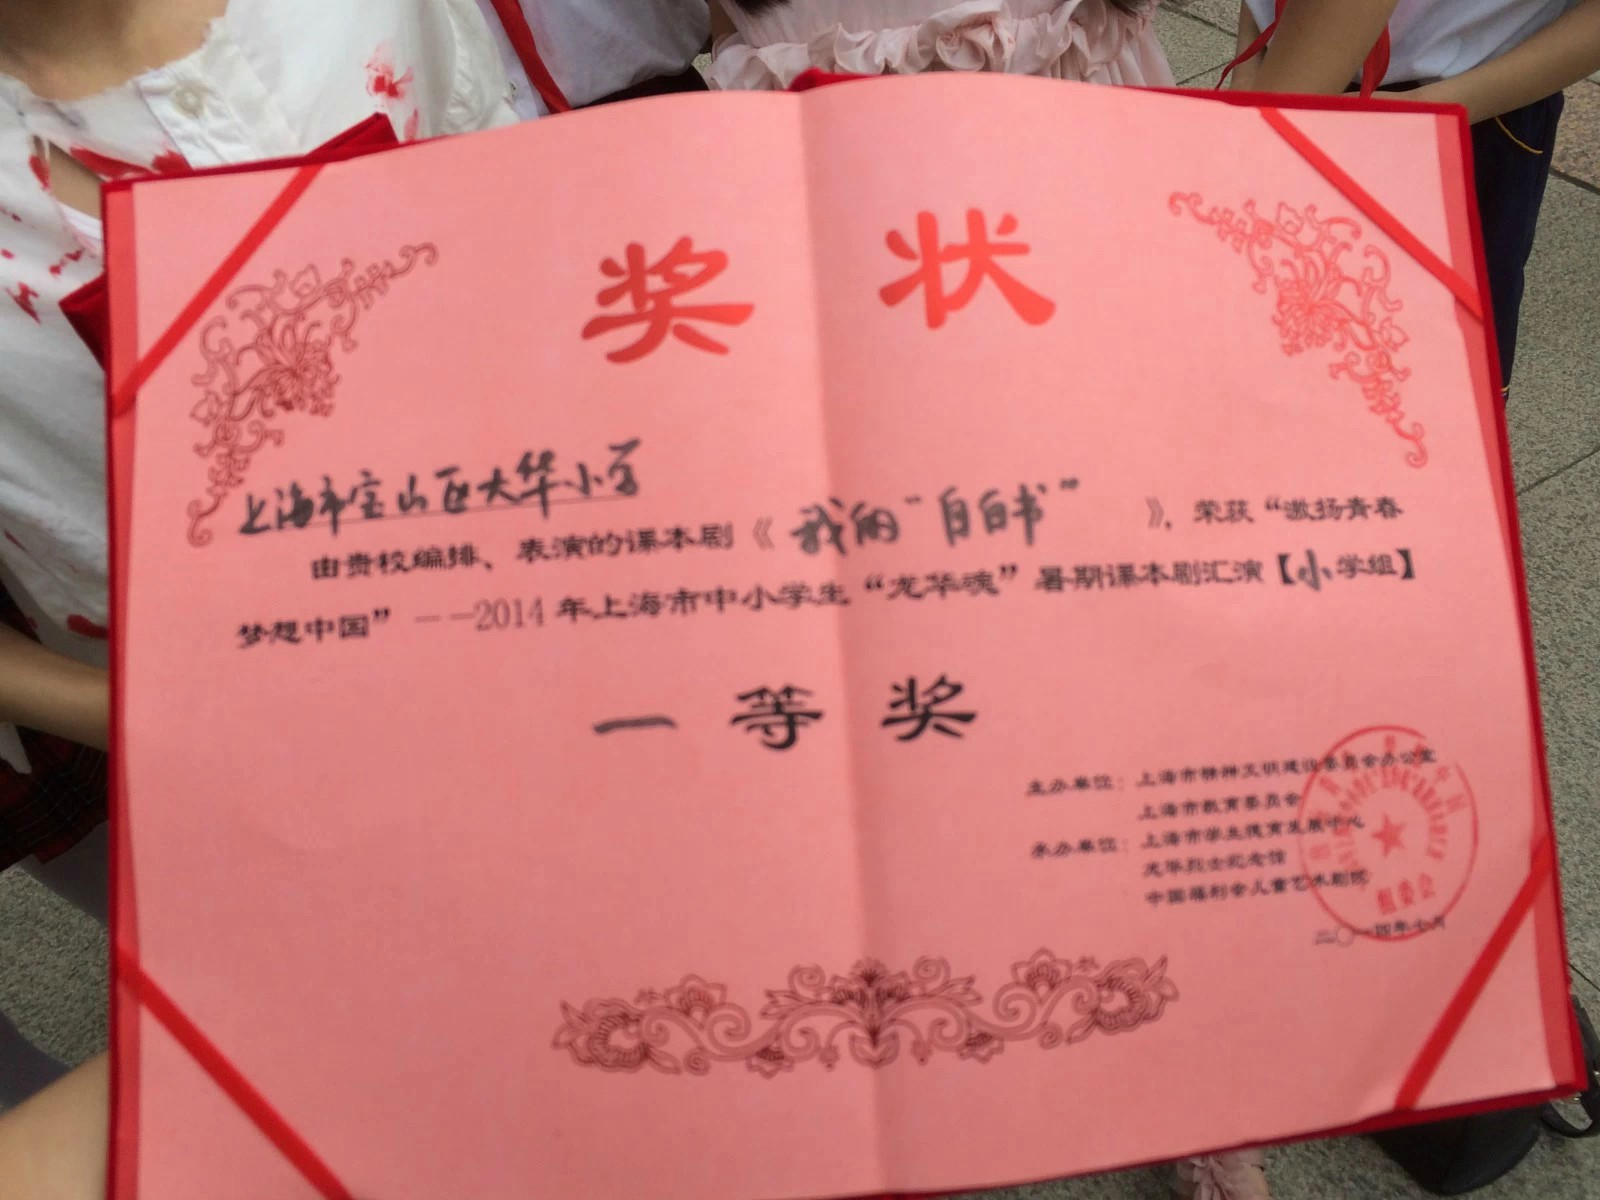 奖状
上海市宝山区大华小学
由贵校编排、表演的课本剧《我的“自白书”》，荣获“激扬青春
梦想中国”——2014年上海市中小学生“龙华魂”暑期课本剧汇演【小学组】
一等奖
主办单位：上海市精神文明建设委员会办公室
上海市教育委员会
承办单位：上海市学生德育发展中心
龙华烈士纪念馆
中国福利会儿童艺术剧院
组委会
二〇一四年七月